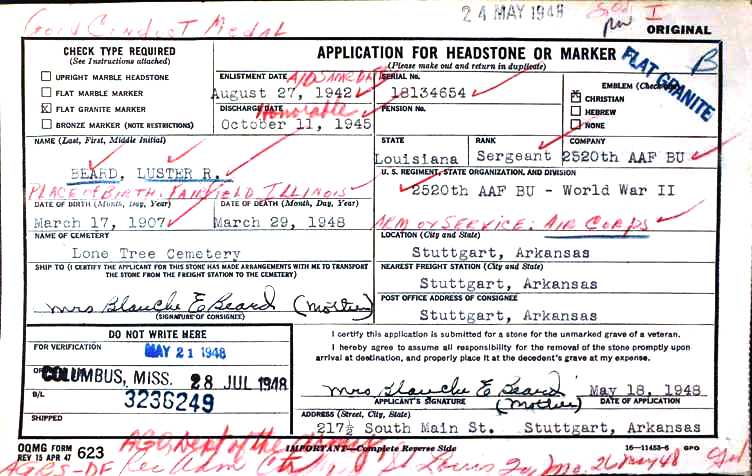 Good Conduct Medal
24 MAY 1948
I
ORIGINAL
CHECK TYPE REQUIRED
(See Instructions attached)
UPRIGHT MARBLE HEADSTONE
FLAT MARBLE MARKER
X FLAT GRANITE MARKER
BRONZE MARKER (NOTE RESTRICTIONS)
APPLICATION FOR HEADSTONE OR MARKER
(Please make out and return in duplicate)
FLAT GRANITE
B
ENLISTMENT DATE
August 27, 1942
SERIAL No.
18134654
EMBLEM (Check one)
X CHRISTIAN
HEBREW
NONE
DISCHARGE DATE
Honorable
October 11, 1945
PENSION No.
NAME (Last, First, Middle Initial)
BEARD, LUSTER R.
STATE
Louisiana
RANK
Sergeant
COMPANY
2520th AAF BU
PLACE of BIRTH: FAIRFIELD ILLINOIS
U. S. REGIMENT, STATE ORGANIZATION, AND DIVISION
2520th AAF BU - World War II
DATE OF BIRTH (Month, Day, Year)
March 17, 1907
DATE OF DEATH (Month, Day, Year)
March 29, 1948
ARM OF SERVICE: AIR CORPS
NAME OF CEMETERY
Lone Tree Cemetery
LOCATION (City and State)
Stuttgart, Arkansas
SHIP TO (I CERTIFY THE APPLICANT FOR THIS STONE HAS MADE ARRANGEMENTS WITH ME TO TRANSPORT
THE STONE FROM THE FREIGHT STATION TO THE CEMETERY)
NEAREST FREIGHT STATION (City and State)
Stuttgart, Arkansas
Mrs Blanche E Beard (Mother)
(SIGNATURE OF CONSIGNEE)
POST OFFICE ADDRESS OF CONSIGNEE
Stuttgart, Arkansas
DO NOT WRITE HERE
FOR VERIFICATION
MAY 21 1948
COLUMBUS, MISS. 28 JUL 1948
B/L
3236249
SHIPPED
I certify this application is submitted for a stone for the unmarked grave of a veteran.
I hereby agree to assume all responsibility for the removal of the stone promptly upon
arrival at destination, and properly place it at the decedent's grave at my expense.
Mrs Blanche E Beard
May 18, 1948
APPLICANT'S SIGNATURE
(Mother)
DATE OF APPLICATION
ADDRESS (Street, City, State)
217½ South Main St. Stuttgart, Arkansas
OQMG FORM
REV 15 APR 47 623
IMPORTANT—Complete Reverse Side
16—11453-6 GPO
AGO, Dept of the Army
AGRS-DF Rec Adm Ctr, St Louis 20, Mo. 26 May 48